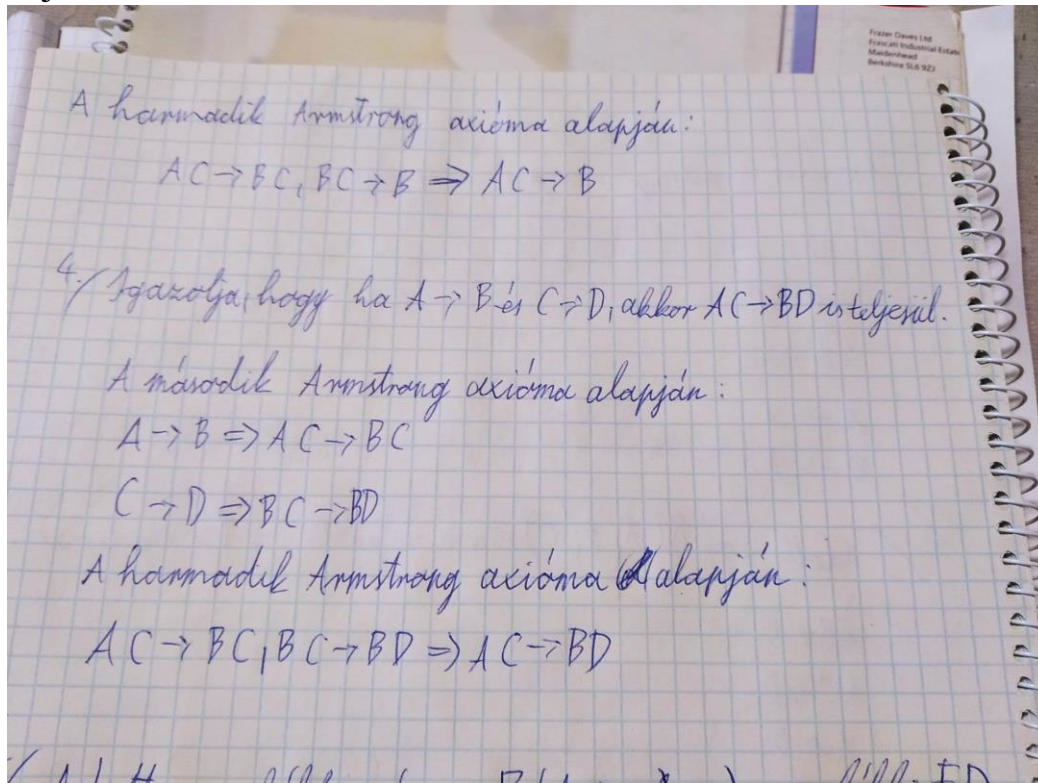 Frazer Daves Ltd
Frascati Industrial Estate
Maidenhead
Berkshire SL6 9ZJ
A harmadik Armstrong axióma alapján:
AC → BC, BC → B ⇒ AC → B
4./ Igazolja, hogy ha A → B és C → D, akkor AC → BD is teljesül.
A második Armstrong axióma alapján:
A → B ⇒ AC → BC
C → D ⇒ BC → BD
A harmadik Armstrong axióma alapján:
AC → BC, BC → BD ⇒ AC → BD